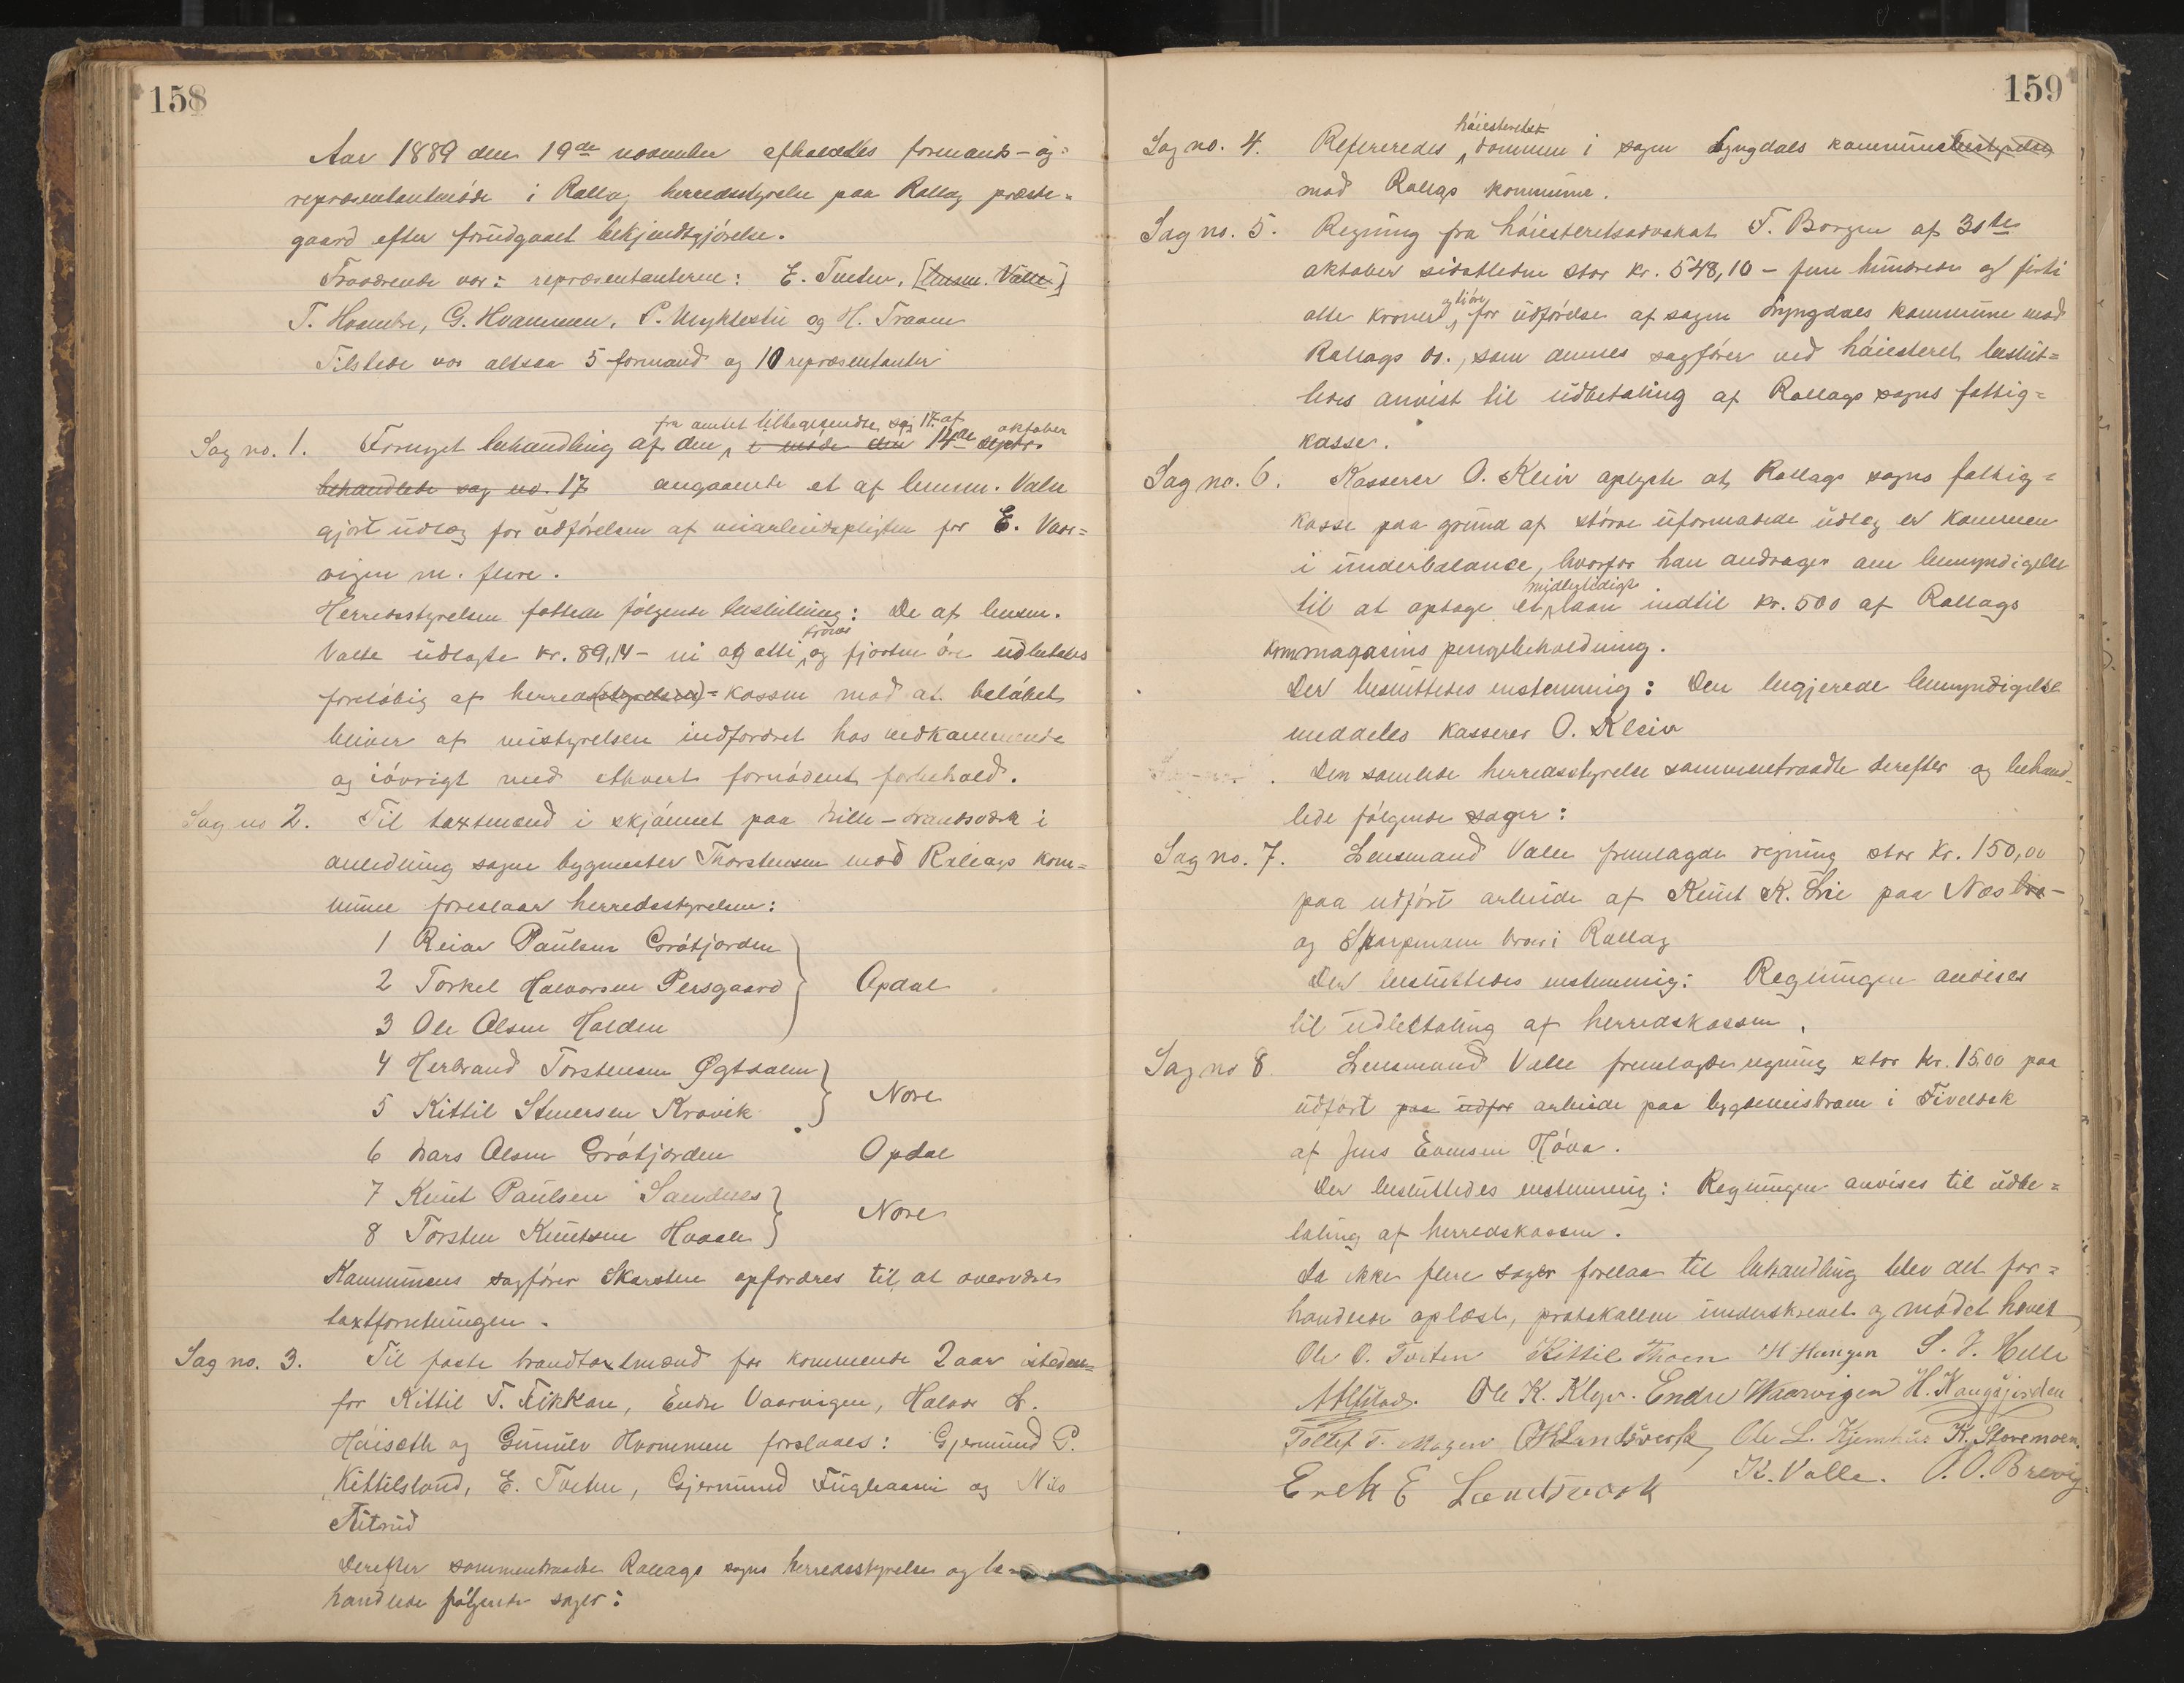 158
Aar 1889 den 19de november afholdtes formands- og
repræsentantmøde i Rollag herredsstyrelse paa Rollag præste-
gaard efter forudgaaet bekjendtgjørelse.
Fraværende var: repræsentanterne: E. Tveten, [lensm. Valle]
T. Hvambe, G. Hvammen, P. Myhlestu og H. Traaen
Tilstede var altsaa 5 formænd og 10 repræsentanter
fra amtet tilbagesendte sag 17 af oktober
Sag no. 1. Fornyet behandling af den i møde den 14de septbr.
behandlede sag no. 17 angaaende et af lensm. Valle
gjort udlæg for udførelsen af veiarbeidspligten for E. Vaar-
vigen m. flere.
Herredsstyrelsen fattede følgende beslutning: De af lensm.
Valle udlagte kr. 89,14 - ni og otti kroner og fjorten øre udbetales
foreløbig af herreds(styrelsen)-kassen mod at beløbet
bliver af veistyrelsen indfordret hos vedkommende
og iøvrigt med ethvert fornødent forbehold.
Sag no 2. Til taxtmænd i skjønnet paa Lille-Brandsværk i
anledning sagen bygmester Thorstensen mod Rollags kom-
mune foreslaar herredsstyrelsen:
1 Reiar Paulsen Grøtjorden
2 Torkel Halvorsen Persgaard Opdal
3 Ole Olsen Halden
4 Herbrand Torstensen Øgtdalen
5 Kittil Stenersen Kravik Nore
6 Lars Olsen Grøtjorden Opdal
7 Knut Paulsen Sandnes
8 Torsten Knutsen Haaale Nore
Kommunens sagfører Skarsten opfordres til at overvære
taxtforretningen.
Sag no. 3. Til faste brandtaxtmænd for kommende 2 aar isteden-
for Kittil T. Fikkan, Endre Vaarvigen, Halvor L.
Høiseth og Gunulv Hvammen forslaaes: Gjermund P.
Kittilsland, E. Tveten, Gjermund Fuglaani og Nils
Aitrud
Derefter sammentraadte Rollags sogns herredsstyrelse og be-
handlede følgende sager:
159
Sag no. 4. Refereredes høiesterets dommen i sagen Lyngdals kommunebestyrelse
mod Rollags kommune.
Sag no. 5. Regning fra høiesteretsadvokat F. Borgen af 30te
oktober sidstleden stor kr. 548,10 - fem hundrede og firti
otte kroner og ti øre, for udførelse af sagen Lyngdals kommune mod
Rollags do., som dennes sagfører ved høiesteret beslut-
tedes anvist til udbetaling af Rollags sogns fattig-
kasse.
Sag no. 6. Kasserer O. Kleiv oplyste at Rollags sogns fattig-
kasse paa grund af større uformodede udlæg er kommen
i underbalance, hvorfor han andrager om bemyndigelse
til at optage et midlertidigt laan indtil kr. 500 af Rollags
kornmagasins pengebeholdning.
Der besluttedes enstemmig: Den begjærede bemyndigelse
meddeles kasserer O. Kleiv
Den samlede herredsstyrelse sammentraadte derefter og behand-
lede følgende sager:
Sag no. 7. Lensmand Valle fremlagde regning stor kr. 150,00
paa udført arbeide af Knut K. Lie paa Næs bro-
og Skarpmoen bro i Rollag
Der besluttedes enstemmig: Regningen anvises
til udbetaling af herredskassen.
Sag no 8. Lensmand Valle fremlagde regning stor kr. 15,00 paa
udført paa udfør arbeide paa bygdeveisbroen i Tveldsk
af Jens Evensen Høva.
Der besluttedes enstemmig: Regningen anvises til udbe-
taling af herredskassen.
Da ikke flere sager forelaa til behandling blev det for-
handlede oplæst, protokollen underskrevet og mødet hævet
Ole O. Tveten Kittil Thoen H Haugen S. J. Helle
Ole K. Klev. Endre Waarvigen H. Haugsjorden
Tollef T. Mogen OKLandsverk Ole L. Kjemhus K. Storemoen.
Erek E Landsverk K. Valle. O. O. Brevig